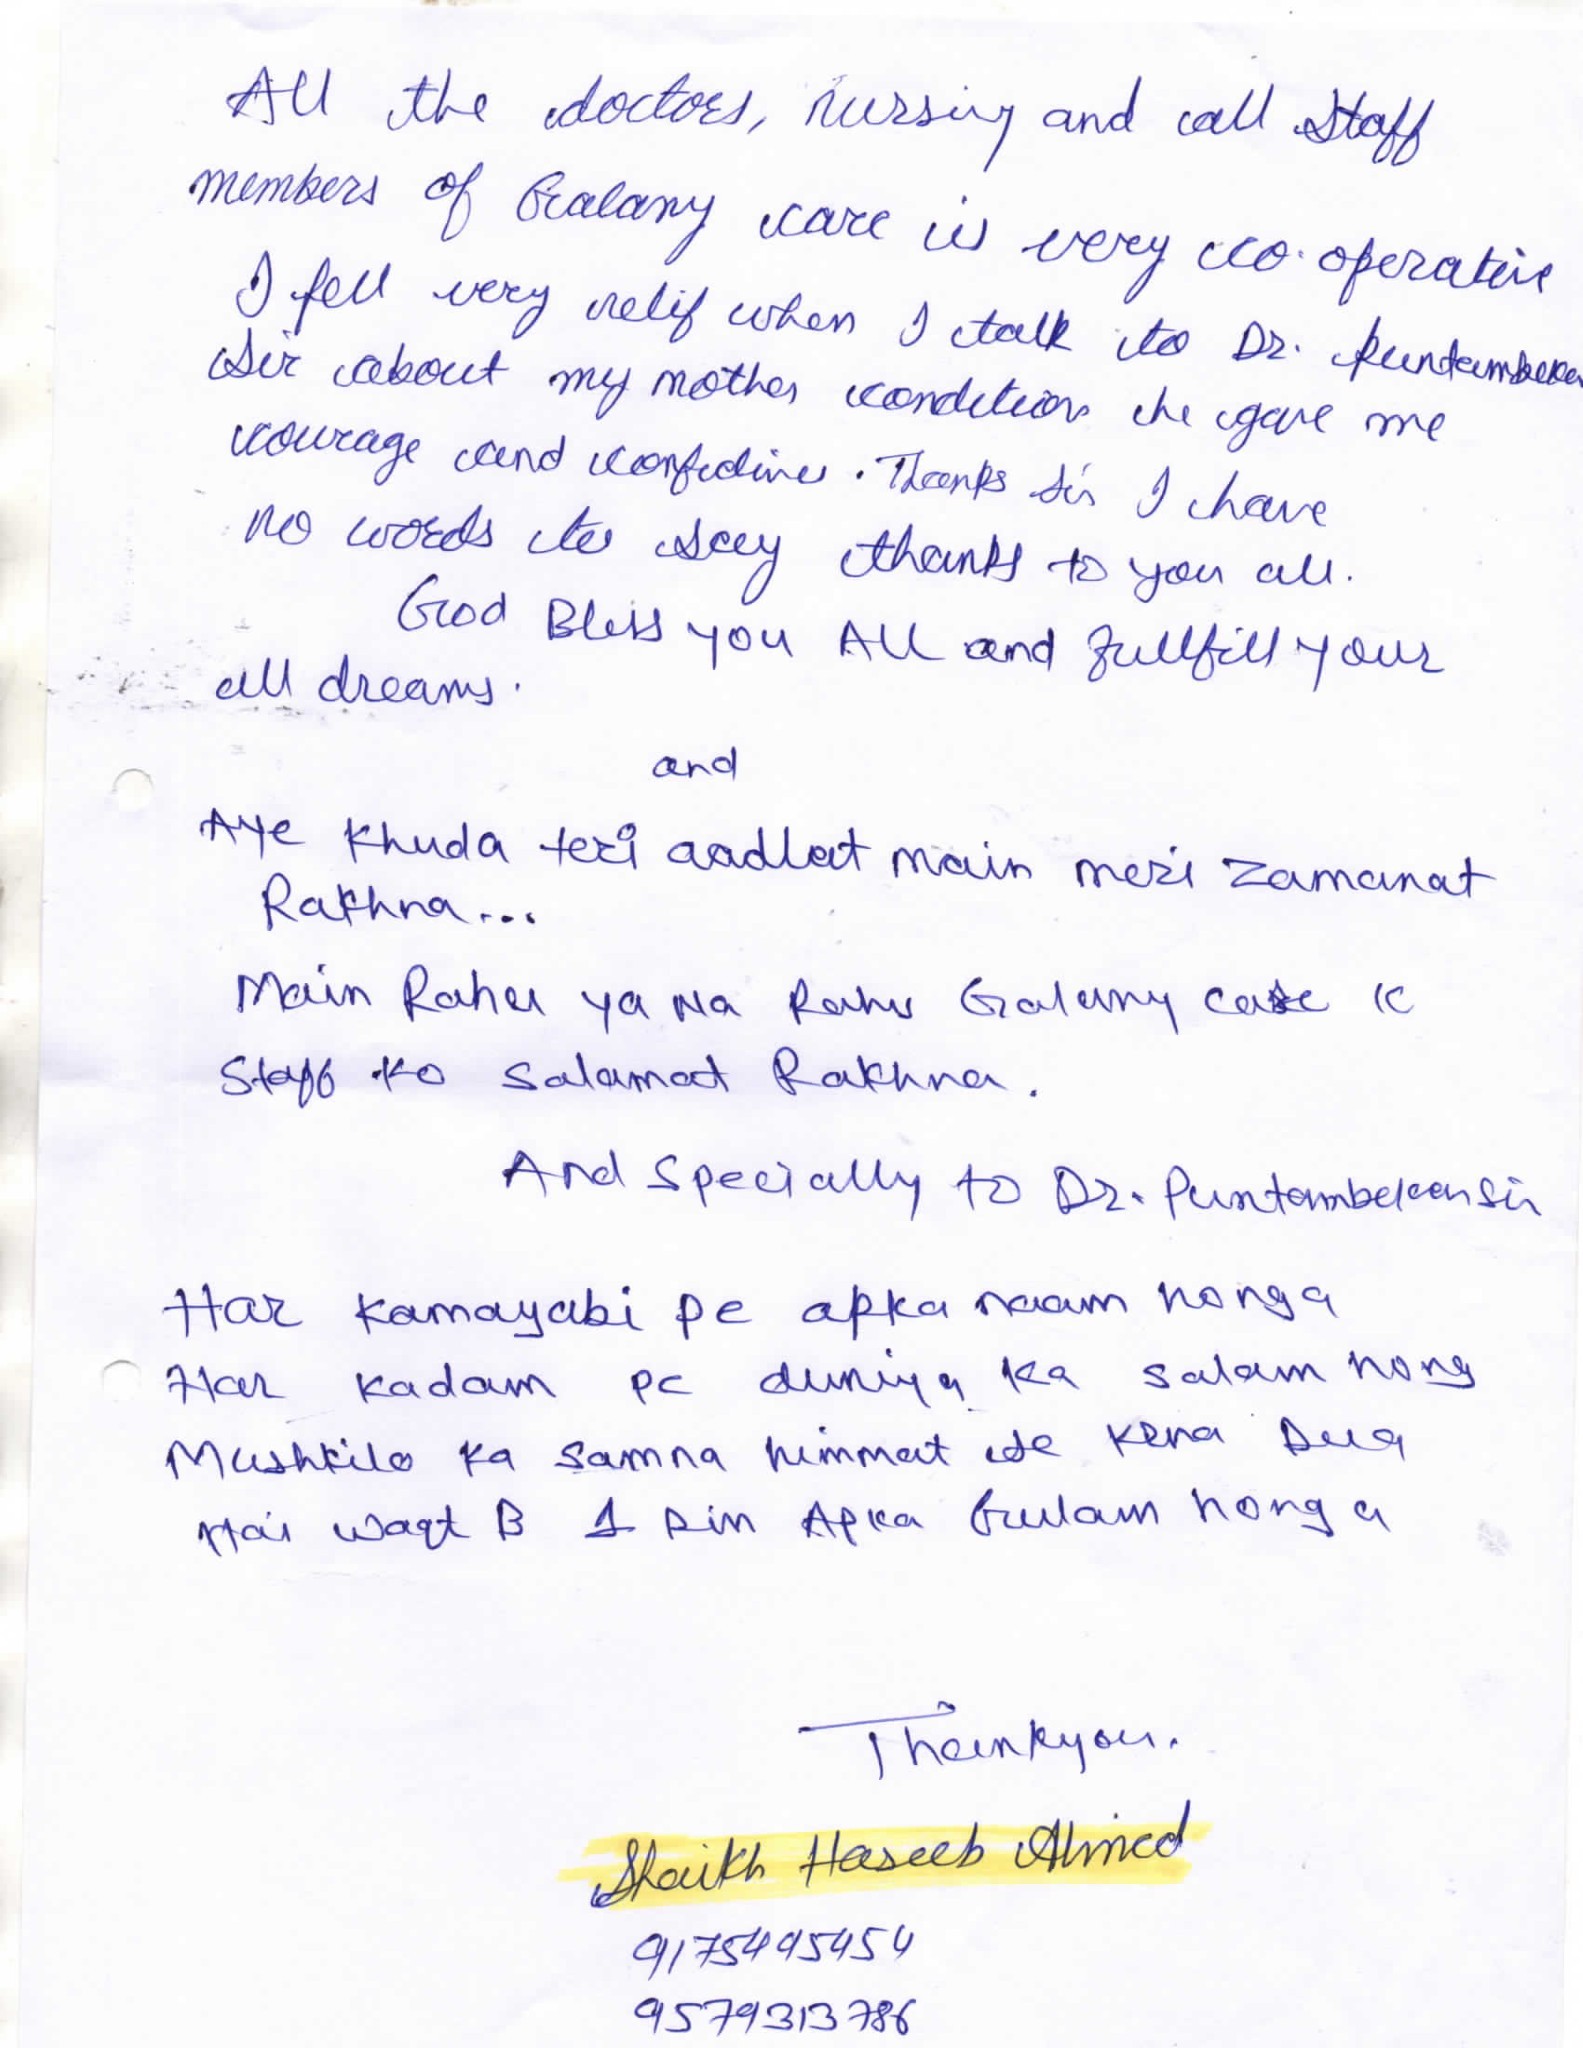 All the doctors, nursing and all staff
members of Galaxy care is very co-operative
I fell very relif when I talk to Dr. Puntambekar
Sir about my mother condition he gave me
courage and confidine. Thanks sir I have
no words to say thanks to you all.
God Bless you All and fullfill your
all dreams.
and
Aye Khuda teri aadlat main meri zamanat
Rakhna...
Main Rahu ya Na Rahu Galaxy care K
Staff ko salamat Rakhna.
And Specially to Dr. Puntambekar sir
Har kamayabi pe apka naam honga
Har kadam pe duniya ka salam hong
Mushkilo ka samna himmat se krna Dua
Hai waqt B 1 Din Apka Gulam honga
Thankyou.
Shaikh Haseeb Ahmed
9175495454
9579313786